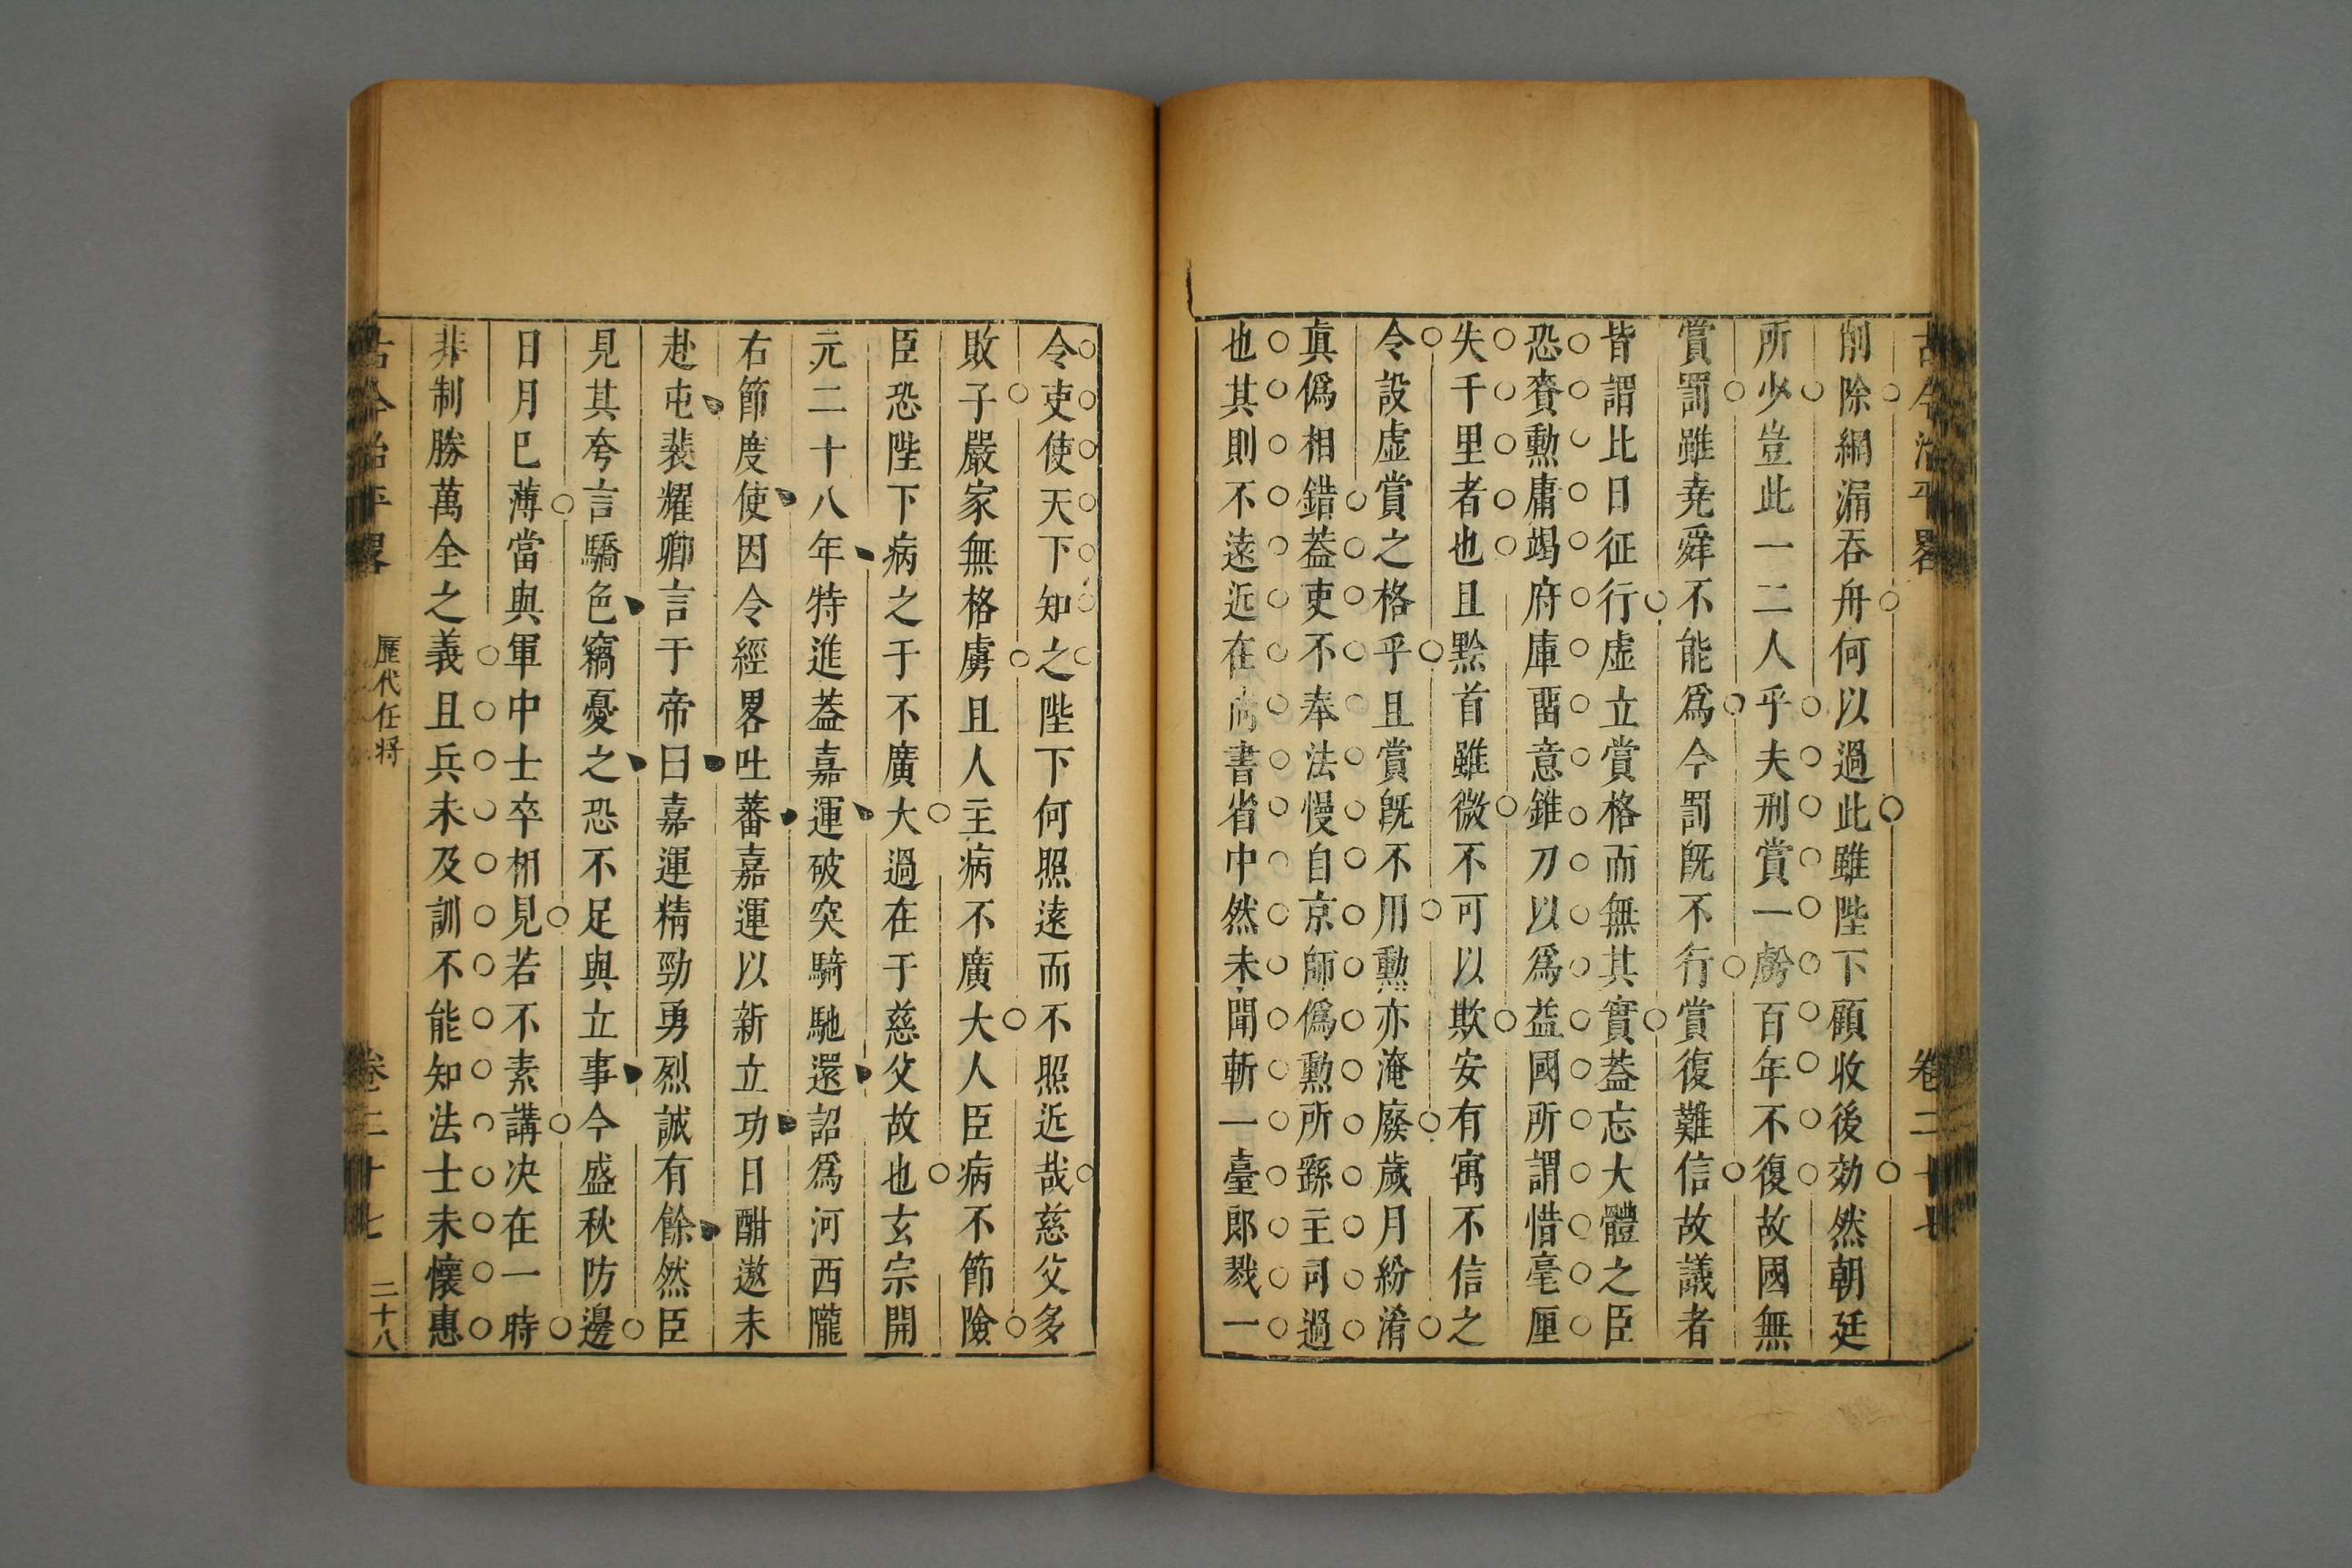 古今治平畧 卷二十七
削除網漏吞舟何以過此雖陛下顧收後効然朝廷
所少豈此一二人乎夫刑賞一虧百年不復故國無
賞罰雖堯舜不能爲今罰旣不行賞復難信故議者
皆謂比日征行虛立賞格而無其實蓋忘大體之臣
恐賚勳庸竭府庫畱意錐刀以爲益國所謂惜毫厘
失千里者也且黔首雖微不可以欺安有寓不信之
令設虛賞之格乎且賞旣不用勳亦淹廢歲月紛淆
眞僞相錯蓋吏不奉法慢自京師僞勳所繇主司過
也其則不遠近在尚書省中然未聞斬一臺郎戮一
令吏使天下知之陛下何照遠而不照近哉慈父多
敗子嚴家無格虜且人主病不廣大人臣病不節險
臣恐陛下病之于不廣大過在于慈父故也玄宗開
元二十八年特進蓋嘉運破突騎馳還詔爲河西隴
右節度使因令經畧吐蕃嘉運以新立功日酣遨未
赴屯裴耀卿言于帝曰嘉運精勁勇烈誠有餘然臣
見其夸言驕色竊憂之恐不足與立事今盛秋防邊
日月巳薄當與軍中士卒相見若不素講决在一時
非制勝萬全之義且兵未及訓不能知法士未懷惠
古今治平畧 歷代任將 卷二十七 二十八